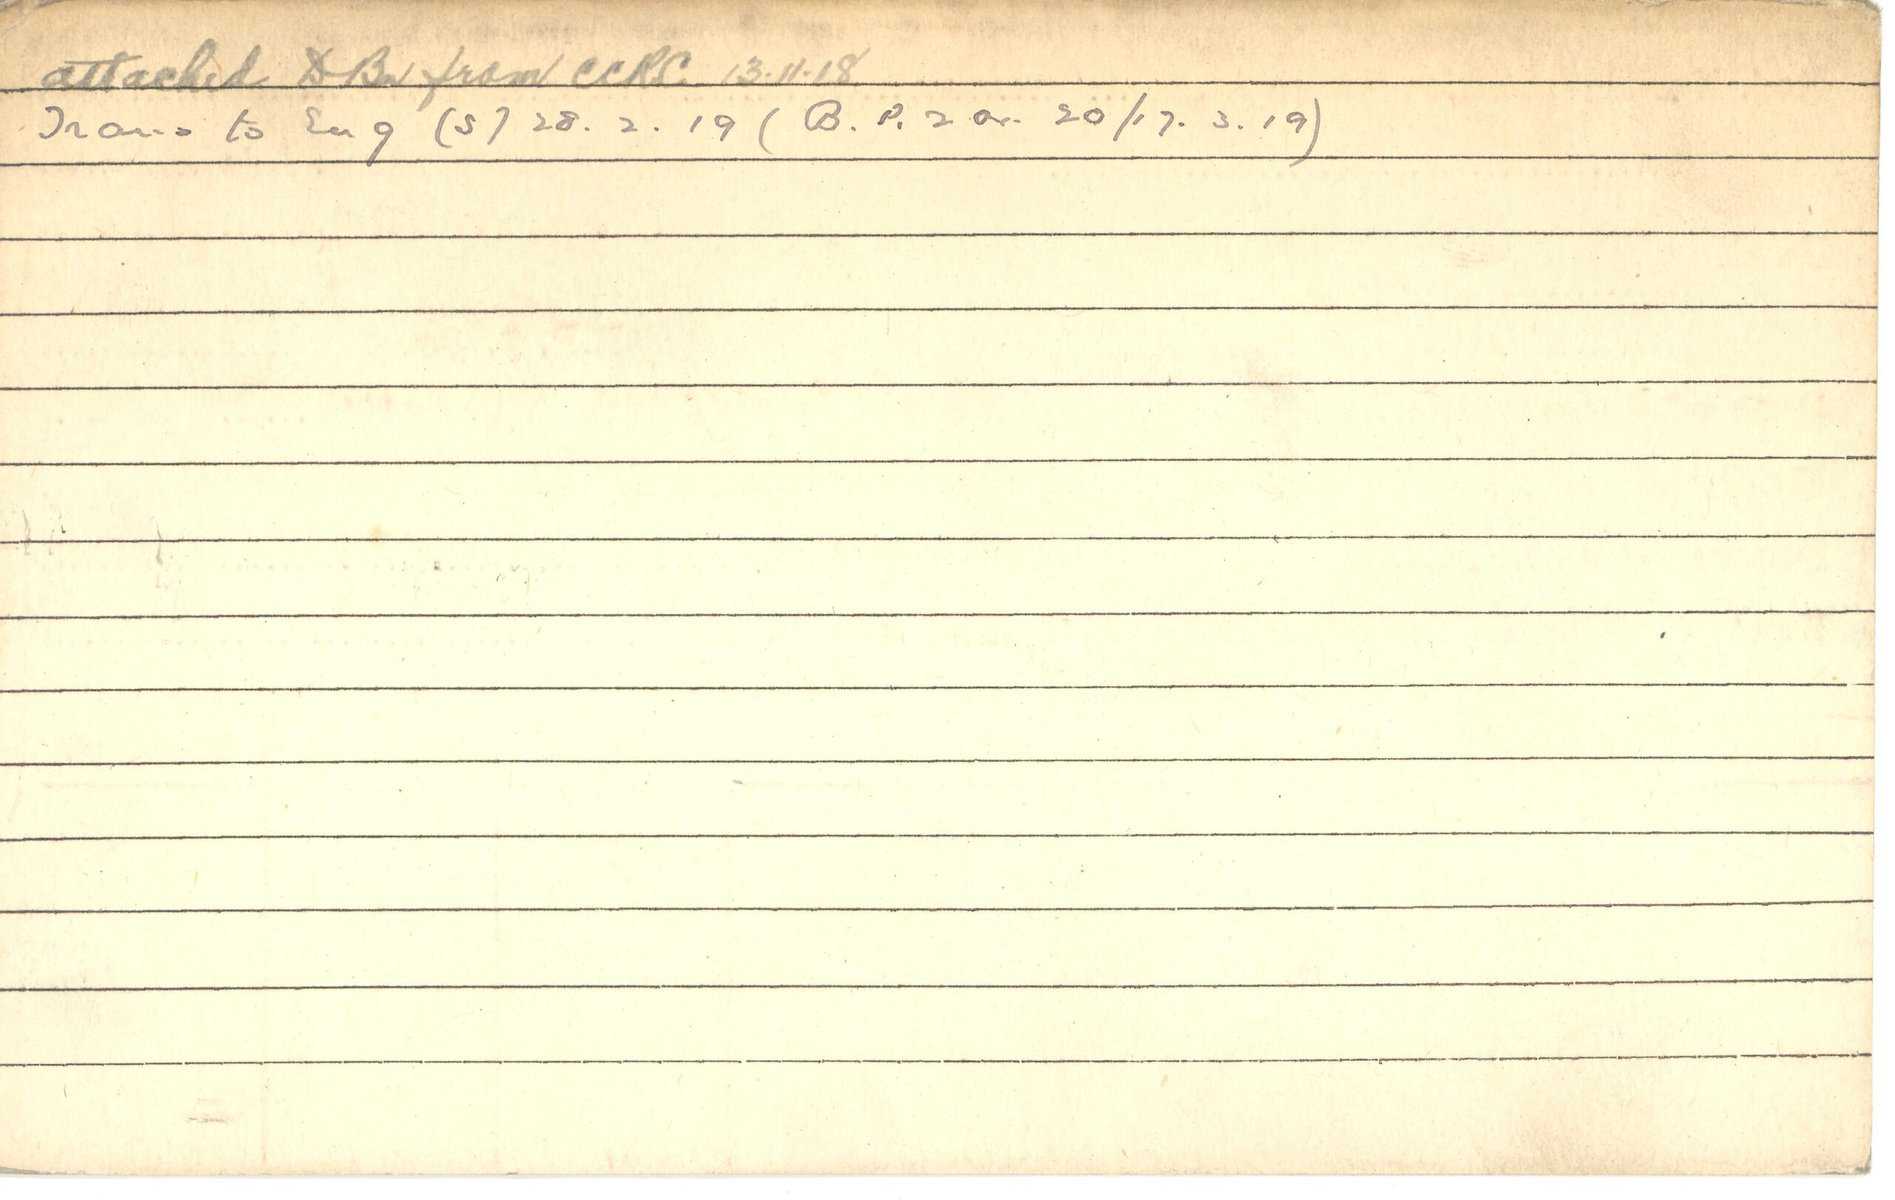 attached D Bn from CCRC. 13.11.18
Trans to Eng (S) 28. 2. 19 ( B. P. 2 Or. 20/17. 3. 19)